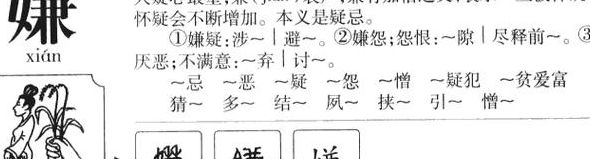 嫌
xián
怀疑会不断增加。本义是疑忌。
①嫌疑:涉～｜避～。②嫌怨;怨恨:～隙｜尽释前～。③
厌恶;不满意:～弃｜讨～。
～忌 ～恶 ～疑 ～怨 ～憎 ～疑犯 ～贫爱富
猜～ 多～ 结～ 夙～ 挟～ 引～ 憎～